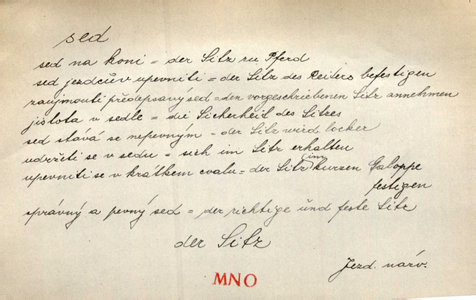 sed
sed na koni = der Sitz zu Pferd
sed jezdcův upevniti = der Sitz des Reiters befestigen
zaujmouti předepsaný sed = den vorgeschriebenen Sitz annehmen
jistota v sedle = die Sicherheit des Sitzes
sed stává se nepevným = der Sitz wird locker
udržeti se v sedu = sich im Sitz erhalten
upevniti se v krátkém cvalu = der Sitz im kurzen Galoppe
festigen
správný a pevný sed = der richtige und feste Sitz
der Sitz
Jezd. názv.
MNO